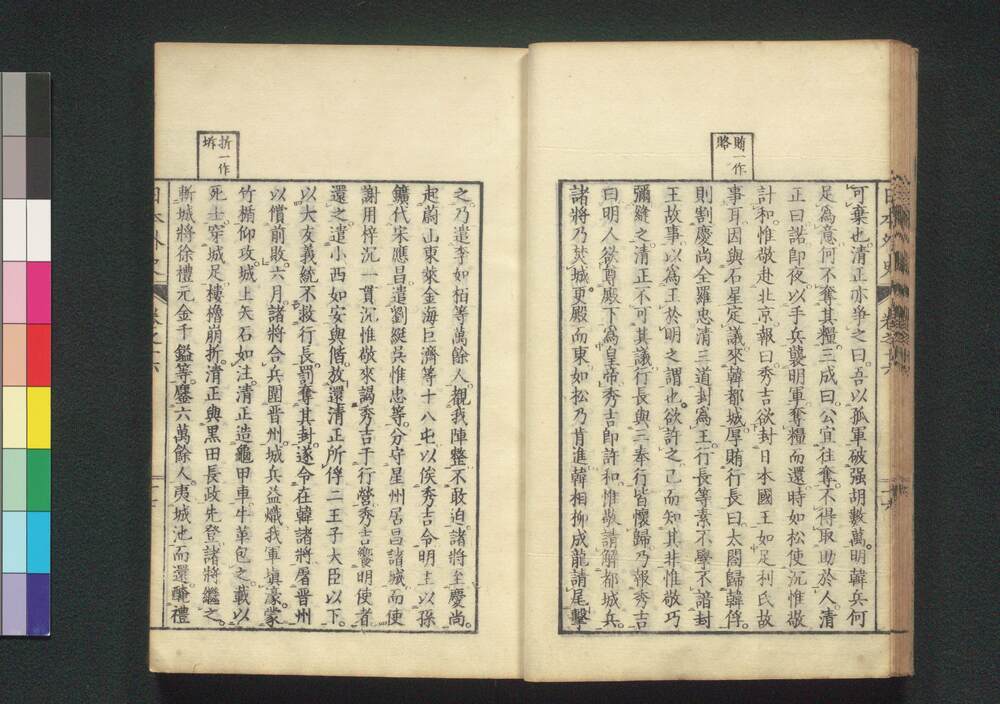 賄一作
賂
可棄也清正亦爭之曰吾以孤軍破强胡數萬明韓兵何
足為意何不奪其糧三成曰公宜往奪不得取助於人清
正曰諾卽夜以手兵襲明軍奪糧而還時如松使沉惟敬
計和惟敬赴北京報曰秀吉欲封日本國王如足利氏故
事耳因與石星定議來韓都城厚賄行長曰太閤歸韓俘
則割慶尚全羅忠清三道封為王行長等素不學不諳封
王故事以為王於明之謂也欲許之己而知其非惟敬巧
彌縫之清正不可其議行長與三奉行皆懷歸乃報秀吉
曰明人欲尊殿下為皇帝秀吉卽許和惟敬請解都城兵
諸將乃焚城更殿而東如松乃肯進韓相柳成龍請尾擊
折一作
坼
之乃遣李如栢等萬餘人觀我陣整不敢迫諸將至慶尚
起蔚山東萊金海巨濟等十八屯以俟秀吉令明主以孫
鑛代宋應昌遣劉綎吳惟忠等分守星州居昌諸城而使
謝用梓沉一貫沉惟敬來謁秀吉于行營秀吉饗明使者
還之遣小西如安與偕放還清正所俘二王子大臣以下
以大友義統不救行長罰奪其封遂令在韓諸將屠晋州
以償前敗六月諸將合兵圍晋州城兵益熾我軍塡濠蒙
竹楯仰攻城上矢石如注清正造龜甲車牛革包之載以
死士穿城足樓櫓崩折清正與黑田長政先登諸將繼之
斬城將徐禮元金千鎰等鏖六萬餘人夷城池而還醃禮